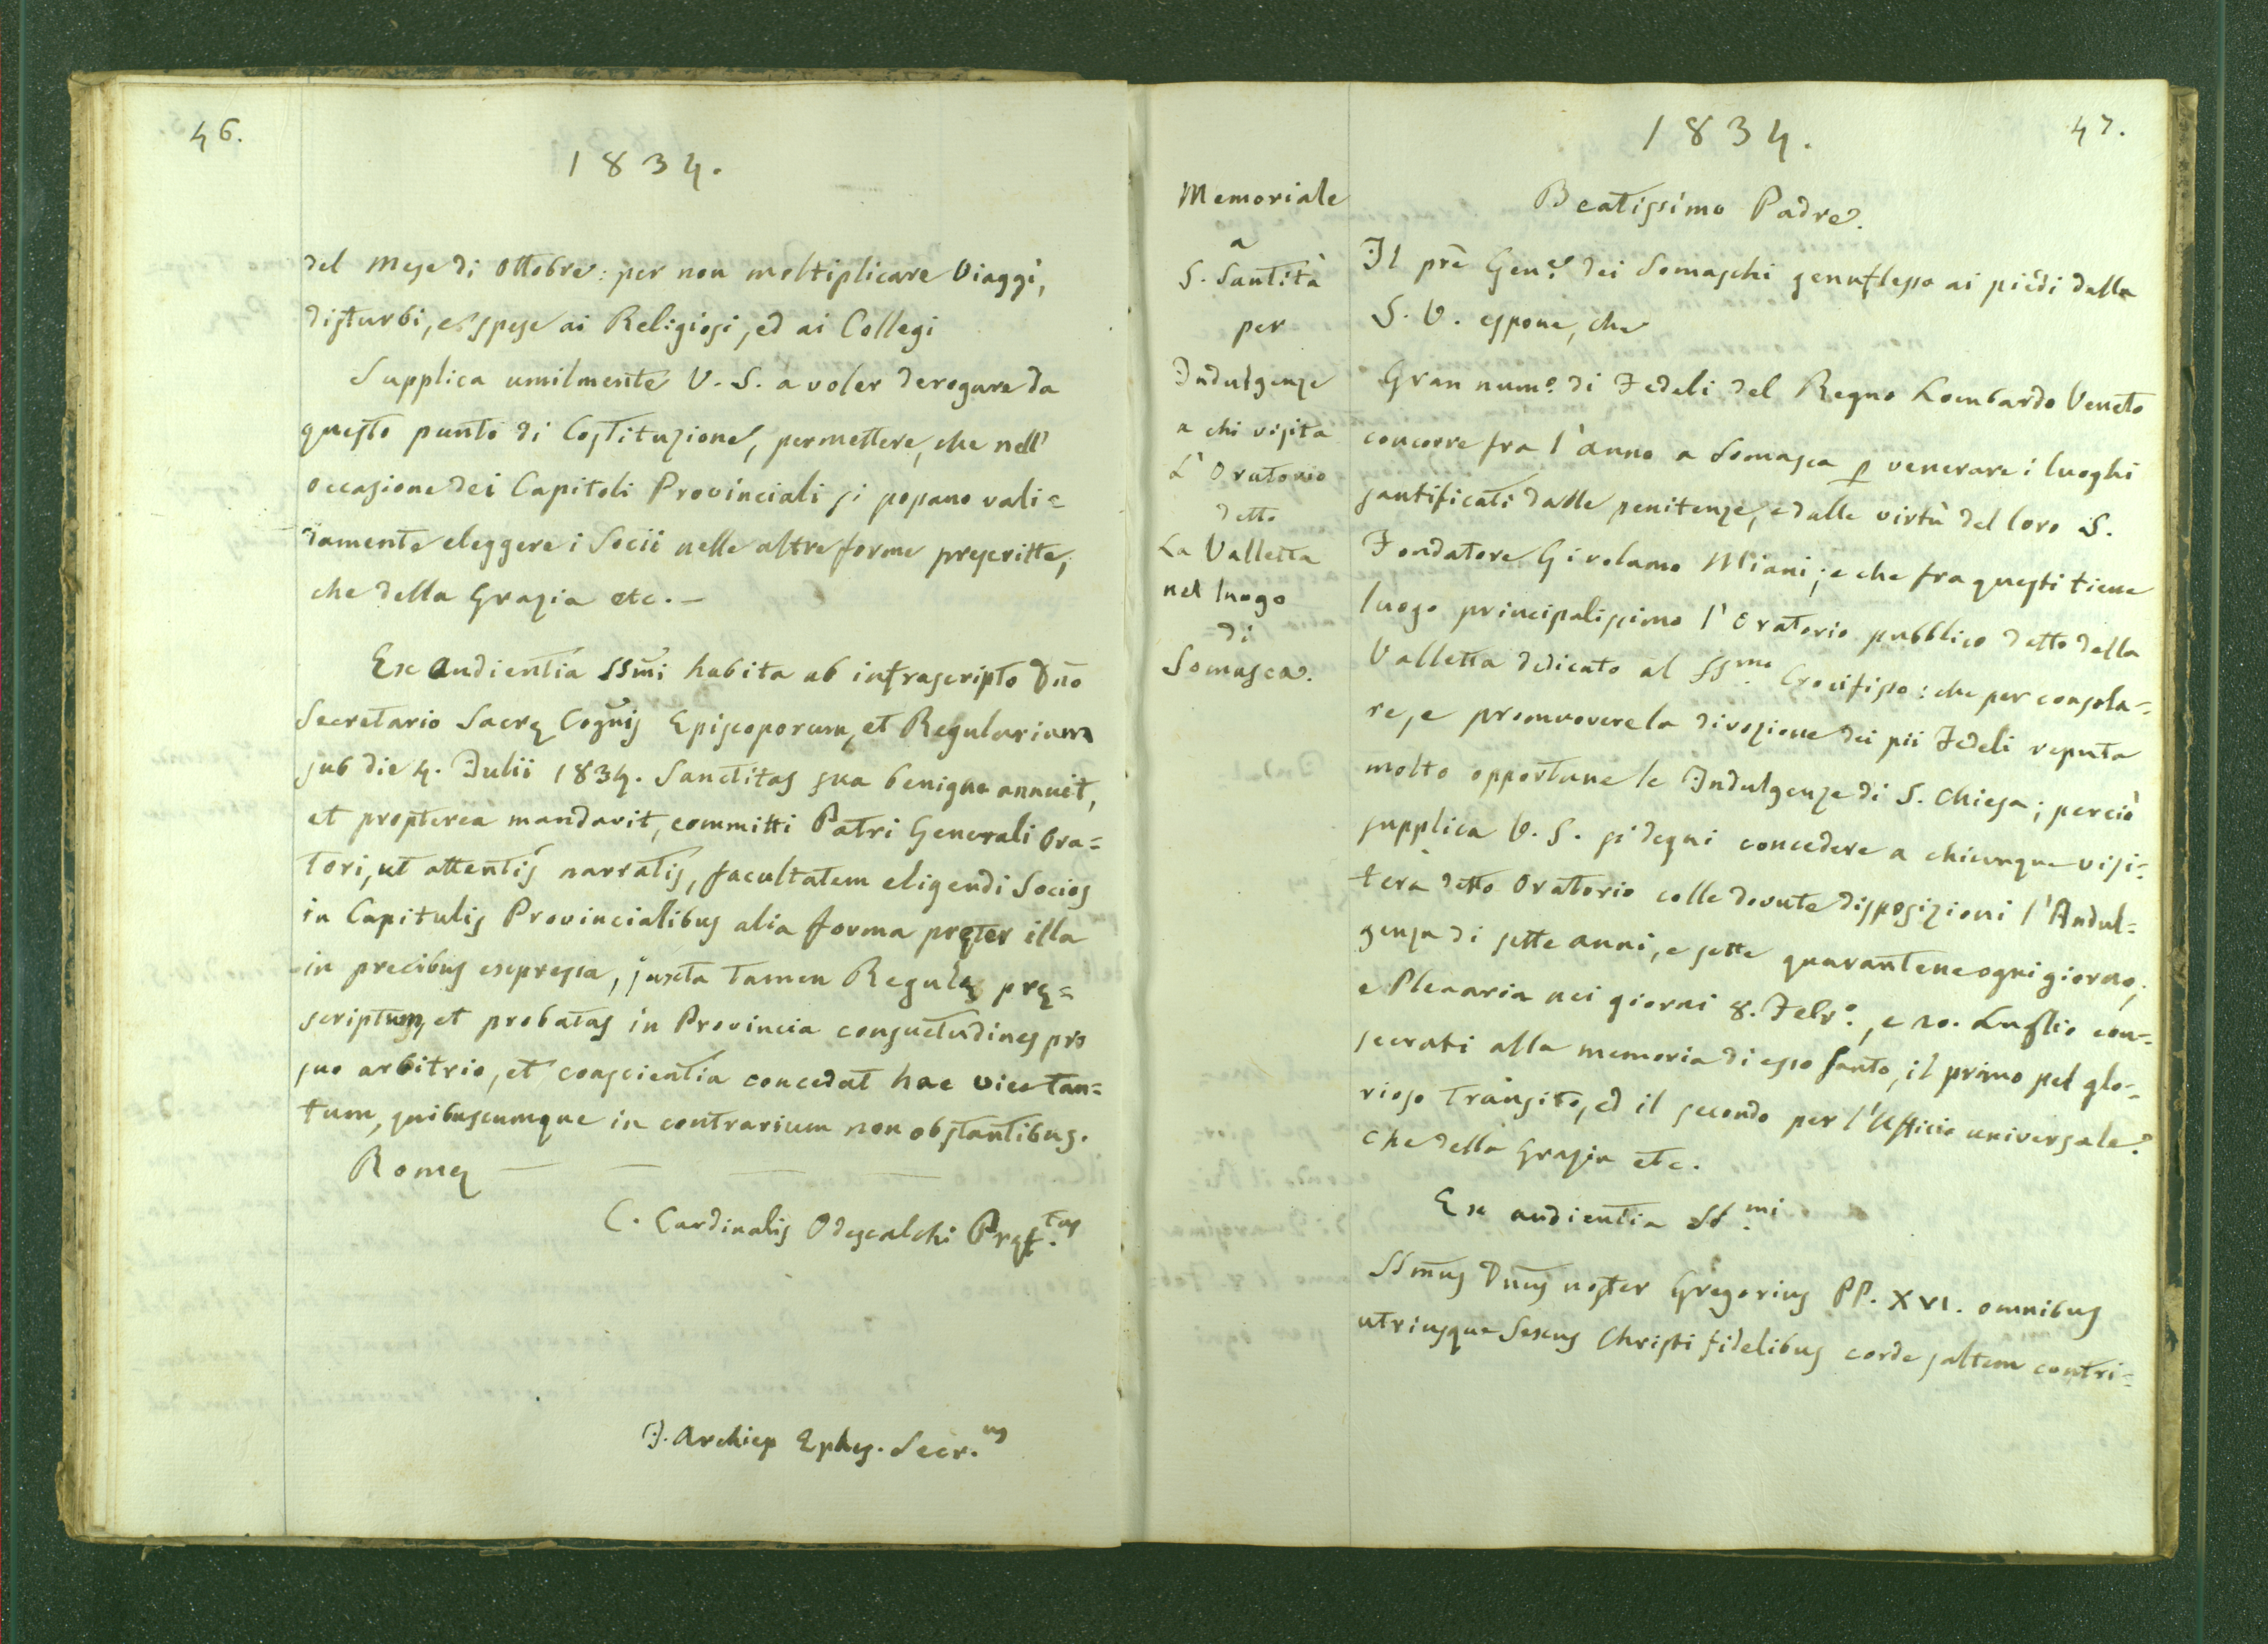 46.
1834.
del Mese di Ottobre: per non moltiplicare Viaggi,
disturbi, e spese ai Religiosi, ed ai Collegi
Supplica umilmente V. S. a voler derogare da
questo punto di Costituzione, permettere, che nell'
occasione dei Capitoli Provinciali si possano vali=
damente eleggere i Socii nelle altre forme prescritte,
che della Grazia etc. —
Ex Audientia SSm̄i habita ab infrascripto Dn̄o
Secretario Sacrę Cogn̄is Episcoporum, et Regularium
sub die 4. Julii 1834. Sanctitas sua benigne annuit,
et propterea mandavit, committi Patri Generali Ora=
tori, ut attentis narratis, facultatem eligendi Socios
in Capitulis Provincialibus alia forma pręter illa
in precibus expressa, juxta tamen Regulę prę=
scriptum, et probatas in Provincia consuetudines pro
suo arbitrio, et conscientia concedat hac vice tan=
tum, quibuscumque in contrarium non obstantibus.
Romę — — — —
C. Cardinalis Odescalchi Pręf.tus
J. Archiep Ephes. Secr.us
47.
1834.
Memoriale
a
S. Santità
per
Indulgenze
a chi visita
L'Oratorio
detto
La Valletta
nel luogo
di
Somasca.
Beatissimo Padre.
Il prē Gen.e dei Somaschi genuflesso ai piedi della
S. V. espone, che
Gran num.o di Fedeli del Regno Lombardo Veneto
concorre fra l'anno a Somasca p venerare i luoghi
santificati dalle penitenze, e dalle virtù del loro S.
Fondatore Girolamo Miani; e che fra questi tiene
luogo principalissimo l'Oratorio pubblico detto della
Valletta dedicato al SS.mo Crocifisso: che per consola=
re, e promuovere la divozione dei pii Fedeli reputa
molto opportune le Indulgenze di S. Chiesa; perciò
supplica V. S. si degni concedere a chiunque visi=
terà detto Oratorio colle dovute disposizioni l'Indul=
genza di sette anni, e sette quarantene ogni giorno,
e Plenaria nei giorni 8. Febr.o, e 20. Luglio con=
secrati alla memoria di esso Santo, il primo pel glo=
rioso Transito, ed il secondo per l'Ufficio universale.
Che della Grazia etc.
Ex audientia SS.mi
SSm̄us Dn̄us noster Gregorius PP. XVI. omnibus
utriusque Sexus Christi fidelibus corde saltem contri=